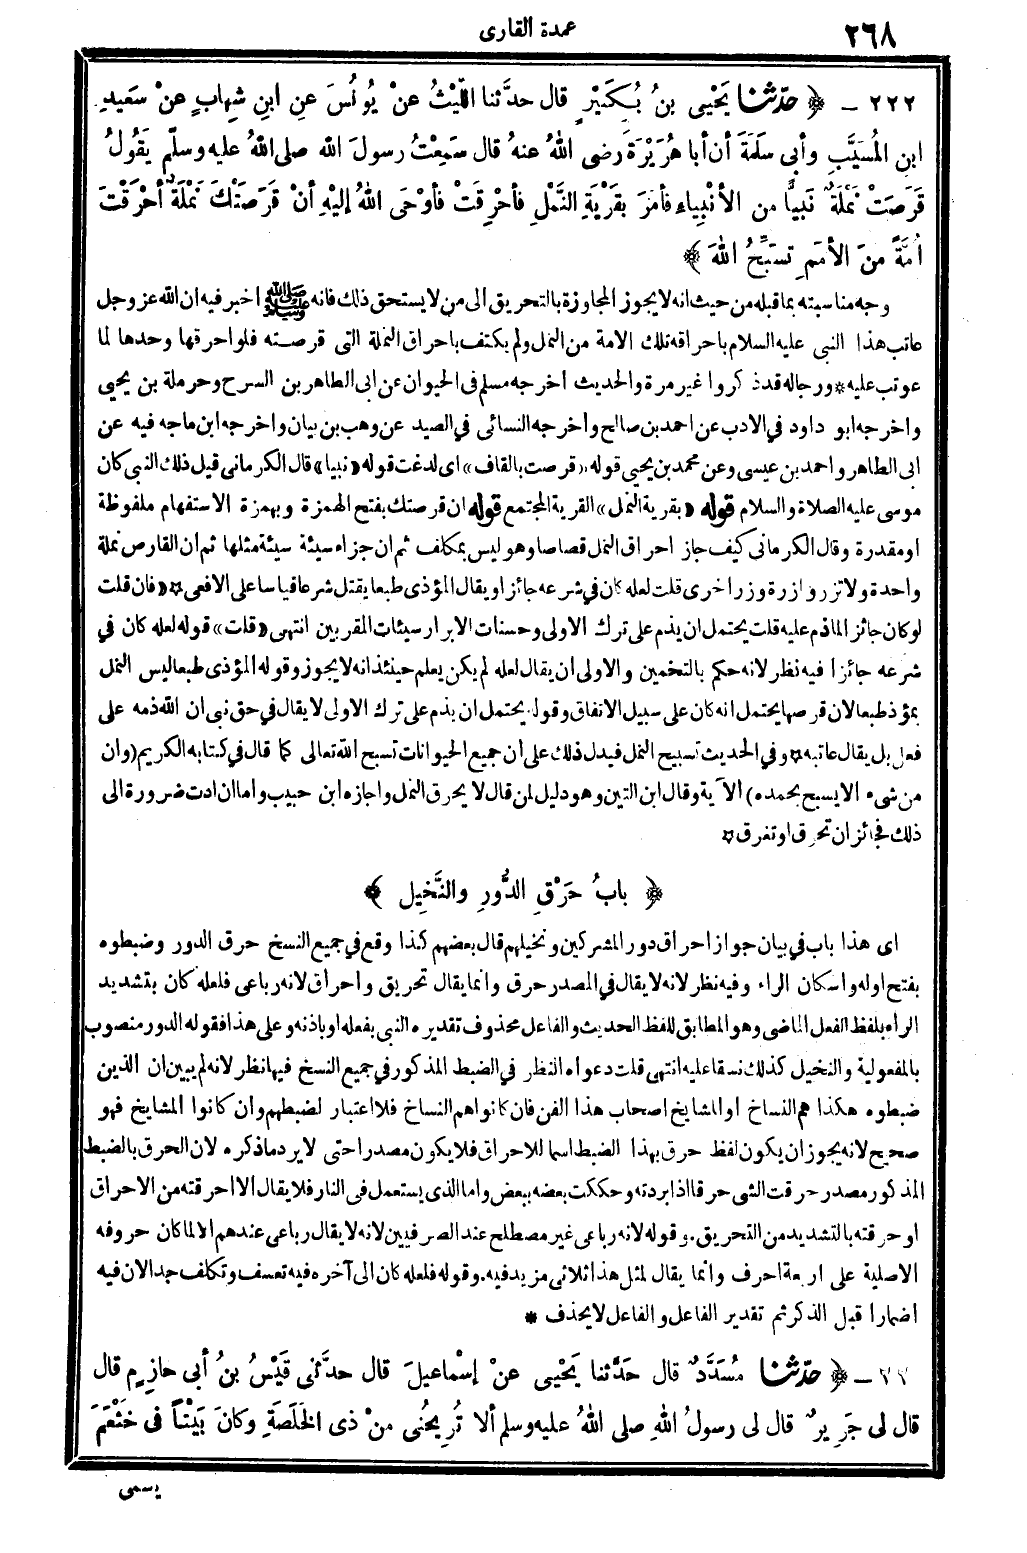 ٢٦٨
عمدة القارى
٢٢٢ - ﴿ حدّثنا يَحْيى بنُ بُكَيْرٍ قال حدَّثنا اللّيْثُ عنْ يُونُسَ عنِ ابنِ شِهابٍ عنْ سَعيدِ
ابنِ المُسيَّبِ وأبي سلَمَةَ أن أبا هُرَيْرَةَ رضى اللهُ عنهُ قال سَمِعْتُ رسولَ الله صلى اللهُ عليه وسلّم يَقُولُ
قَرَصَتْ نَمْلَةٌ نَبيًّا من الأنْبِياءِ فأمَرَ بقَرْيَةِ النَّمْلِ فأحْرِقَتْ فأوْحَى اللهُ إليْهِ أنْ قَرَصَتْكَ نَمْلَةٌ أحْرَقْتَ
أمَّةً منَ الأمَمِ تسَبِّحُ اللهَ ﴾
وجه مناسبته بما قبله من حيث انه لا يجوز المجاوزة بالتحريق الى من لا يستحق ذلك فانه ﷺ اخبر فيه ان الله عز وجل
عاتب هذا النبى عليه السلام باحراقه تلك الامة من النمل ولم يكتف باحراق النملة التى قرصته فلو احرقها وحدها لما
عوتب عليه * ورجاله قد ذكروا غير مرة والحديث اخرجه مسلم فى الحيوان عن ابى الطاهر بن السرح وحرملة بن يحيى
واخرجه ابو داود في الادب عن احمد بن صالح واخرجه النسائى في الصيد عن وهب بن بيان واخرجه ابن ماجه فيه عن
ابى الطاهر واحمد بن عيسى وعن محمد بن يحيى قوله «قرصت بالقاف» اى لدغت قوله «نبيا» قال الكرمانى قيل ذلك النبى كان
موسى عليه الصلاة والسلام قوله «بقرية النمل» القرية المجتمع قوله ان قرصتك بفتح الهمزة وبهمزة الاستفهام ملفوظة
او مقدرة وقال الكرمانى كيف جاز احراق النمل قصاصا وهو ليس بمكلف ثم ان جزاء سيئة سيئة مثلها ثم ان القارص نملة
واحدة ولا تزر وازرة وزر اخرى قلت لعله كان في شرعه جائزا ويقال المؤذى طبعا يقتل شرعا قياسا على الافعى ٭ «فان قلت
لو كان جائز الماذم عليه قلت يحتمل ان يذم على ترك الاولى وحسنات الابرار سيئات المقربين انتهى «قلت» قوله لعله كان في
شرعه جائزا فيه نظر لانه حكم بالتخمين والاولى ان يقال لعله لم يكن يعلم حينئذ انه لا يجوز وقوله المؤذى طبعا ليس النمل
بمؤذ طبعا لان قرصها يحتمل انه كان على سبيل الاتفاق وقوله يحتمل ان يذم على ترك الاولى لا يقال في حق نبى ان الله ذمه على
فعل بل يقال عاتبه ٭ وفي الحديث تسبيح النمل فيدل ذلك على ان جميع الحيوانات تسبح الله تعالى كما قال في كتابه الكريم (وان
من شىء الا يسبح بحمده) الآية وقال ابن التين وهو دليل لمن قال لا يحرق النمل واجازه ابن حبيب واما ان ادت ضرورة الى
ذلك فجائز ان تحرق او تغرق ٭
﴿ بابُ حَرْقِ الدُّورِ والنَّخِيل ﴾
اى هذا باب في بيان جواز احراق دور المشركين ونخيلهم قال بعضهم كذا وقع في جميع النسخ حرق الدور وضبطوه
بفتح اوله واسكان الراء وفيه نظر لانه لا يقال في المصدر حرق وانما يقال تحريق واحراق لانه رباعى فلعله كان بتشديد
الراء بلفظ الفعل الماضى وهو المطابق للفظ الحديث والفاعل محذوف تقديره النبى بفعله او باذنه وعلى هذا فقوله الدور منصوب
بالمفعولية والنخيل كذلك نسقا عليه انتهى قلت دعواه النظر في الضبط المذكور في جميع النسخ فيها نظر لانه لم يبين ان الذين
ضبطوه هكذا هم النساخ او المشايخ اصحاب هذا الفن فان كانوا هم النساخ فلا اعتبار لضبطهم وان كانوا المشايخ فهو
صحيح لانه يجوز ان يكون لفظ حرق بهذا الضبط اسما للاحراق فلا يكون مصدرا حتى لا يرد ما ذكره لان الحرق بالضبط
المذكور مصدر حرقت الشى حرقا اذا بردته وحككت بعضه ببعض واما الذى يستعمل فى النار فلا يقال الا احرقته من الاحراق
او حرقته بالتشديد من التحريق. وقوله لانه رباعى غير مصطلح عند الصرفيين لانه لا يقال رباعى عندهم الا لما كان حروفه
الاصلية على اربعة احرف وانما يقال لمثل هذا ثلاثى مزيد فيه. وقوله فلعله كان الى آخره فيه تعسف وتكلف جدا لان فيه
اضمارا قبل الذكر ثم تقدير الفاعل والفاعل لا يحذف *
- ﴿ حدّثنا مُسَدَّدٌ قال حَدَّثنا يَحْيى عنْ إسْماعيلَ قال حدَّثنى قَيْسُ بنُ أبى حازِمٍ قال
قال لى جَرِيرٌ قال لى رسولُ اللهِ صلى اللهُ عليه وسلم ألا تُرِيحُنى منْ ذى الخَلَصَةِ وكانَ بَيْتًا فى خَثْعَمَ
يسمى